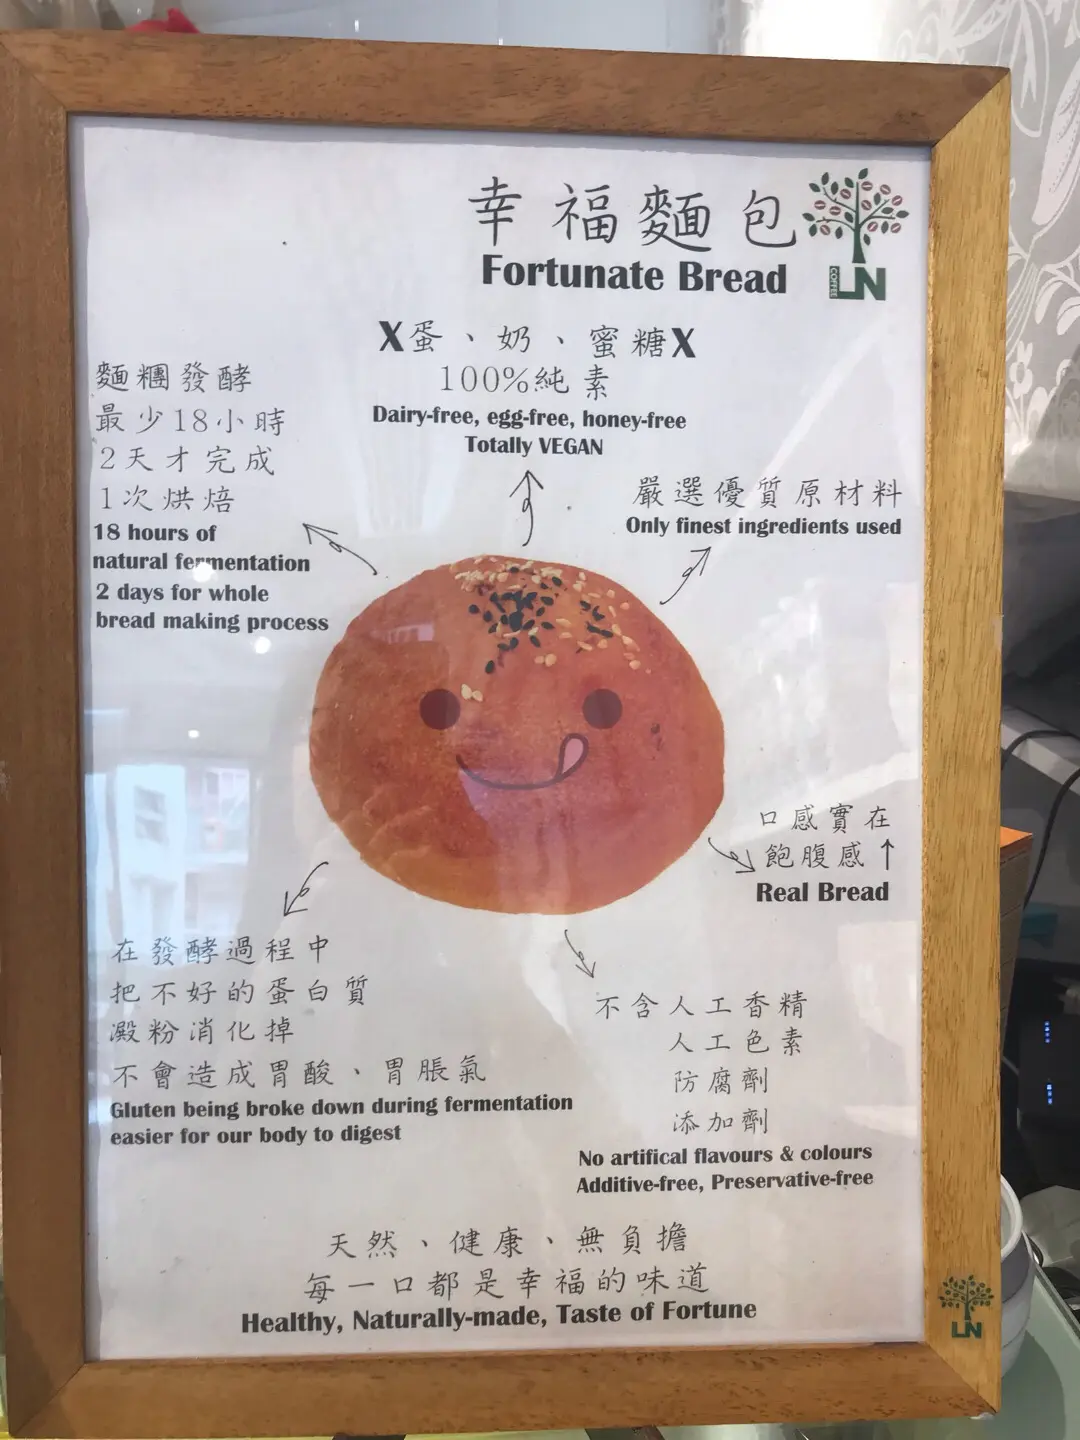 幸福麵包
Fortunate Bread
COFFEE LN
X蛋、奶、蜜糖X
100%純素
Dairy-free, egg-free, honey-free
Totally VEGAN
麵糰發酵
最少18小時
2天才完成
1次烘焙
18 hours of
natural fermentation
2 days for whole
bread making process
嚴選優質原材料
Only finest ingredients used
口感實在
飽腹感↑
Real Bread
在發酵過程中
把不好的蛋白質
澱粉消化掉
不會造成胃酸、胃脹氣
Gluten being broke down during fermentation
easier for our body to digest
不含人工香精
人工色素
防腐劑
添加劑
No artifical flavours & colours
Additive-free, Preservative-free
天然、健康、無負擔
每一口都是幸福的味道
Healthy, Naturally-made, Taste of Fortune
LN